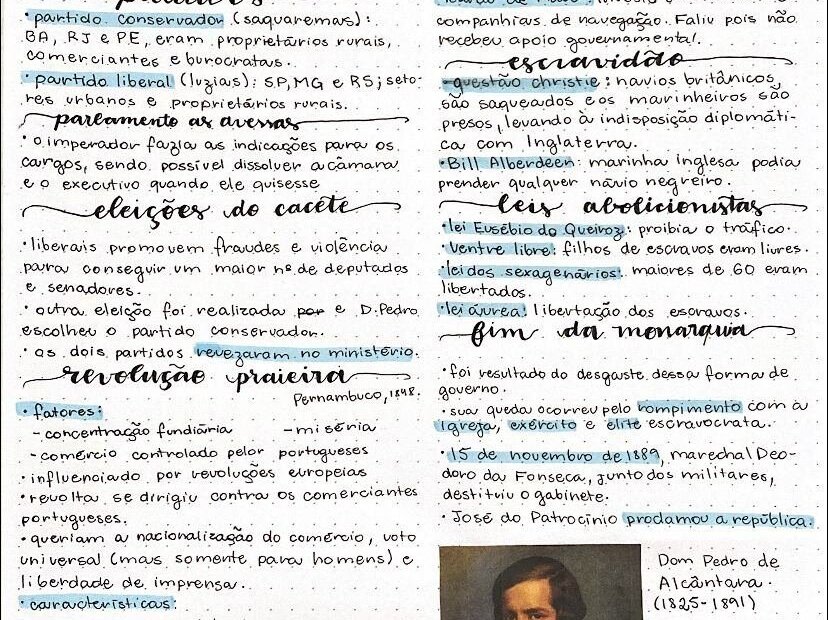 partido conservador (saquaremas):
BA, RJ e PE, eram proprietários rurais,
comerciantes e burocratas.
· partido liberal (luzias): SP, MG e RS; seto-
res urbanos e proprietários rurais.
parlamento as avessas
· o imperador fazia as indicações para os
cargos, sendo possível dissolver a câmara
e o executivo quando ele quisesse
eleições do cacete
· liberais promovem fraudes e violência
para conseguir um maior nº de deputados
e senadores.
· outra eleição foi realizada por e D. Pedro
escolheu o partido conservador.
· os dois partidos revezaram no ministério.
revolução praieira
Pernambuco, 1848.
· fatores:
- concentração fundiária - miséria
- comércio controlado pelor portugueses
· influenciado por revoluções europeias
· revolta se dirigiu contra os comerciantes
portugueses.
· queriam a nacionalização do comércio, voto
universal (mas somente para homens) e
liberdade de imprensa.
· características:
companhias de navegação. Faliu pois não
recebeu apoio governamental.
escravidão
- questão christie: navios britânicos
são saqueados e os marinheiros são
presos, levando à indisposição diplomáti-
ca com Inglaterra.
· Bill Alberdeen: marinha inglesa podia
prender qualquer návio negreiro.
leis abolicionistas
· lei Eusébio do Queiroz: proibia o tráfico.
· ventre libre: filhos de escravos eram livres.
· lei dos sexagenários: maiores de 60 eram
libertados.
· lei áurea: libertação dos escravos.
fim da monarquia
· foi resultado do desgaste dessa forma de
governo.
· sua queda ocorreu pelo rompimento com a
Igreja, exército e elite escravocrata.
· 15 de novembro de 1889, marechal Deo-
doro da Fonseca, junto dos militares,
destituiu o gabinete.
· José do Patrocínio proclamou a república.
Dom Pedro de
Alcântara.
(1825-1891)